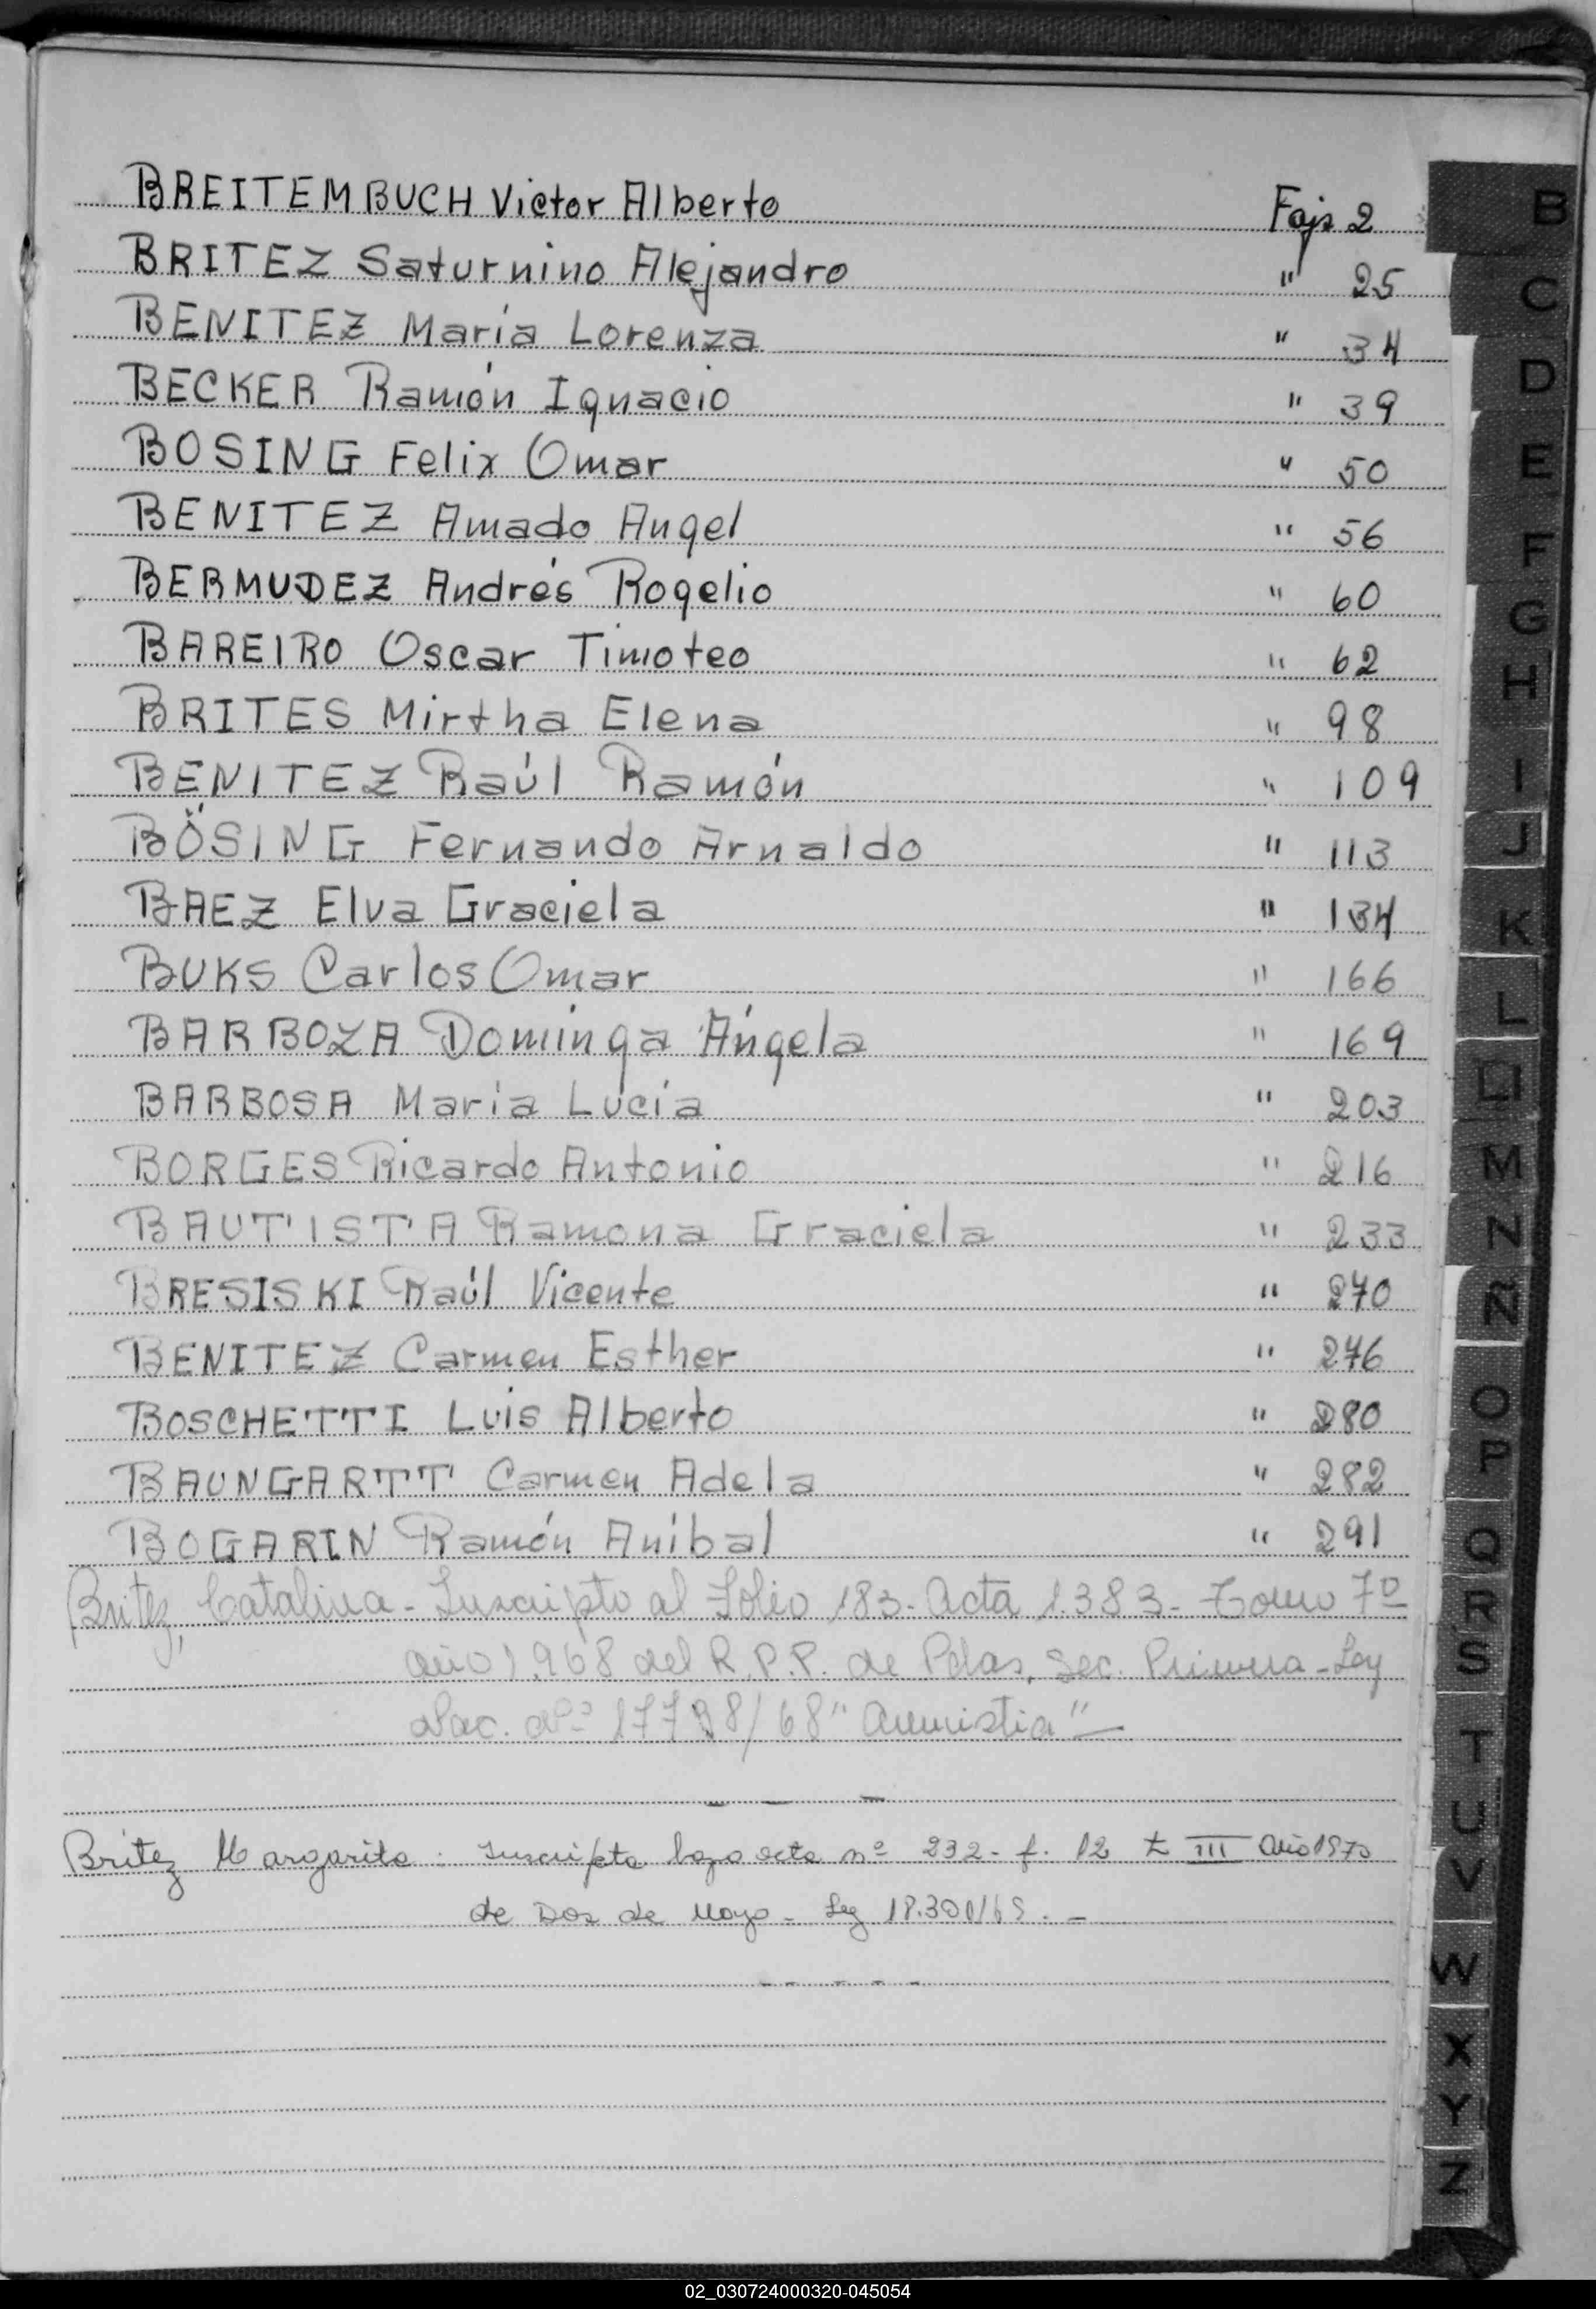 BREITEMBUCH Victor Alberto Fojs 2
BRITEZ Saturnino Alejandro " 25
BENITEZ María Lorenza " 34
BECKER Ramón Ignacio " 39
BOSING Felix Omar " 50
BENITEZ Amado Angel " 56
BERMUDEZ Andrés Rogelio " 60
BAREIRO Oscar Timoteo " 62
BRITES Mirtha Elena " 98
BENITEZ Raúl Ramón " 109
BÖSING Fernando Arnaldo " 113
BAEZ Elva Graciela " 134
BUKS Carlos Omar " 166
BARBOZA Dominga Ángela " 169
BARBOSA Maria Lucía " 203
BORGES Ricardo Antonio " 216
BAUTISTA Ramona Graciela " 233
BRESISKI Raúl Vicente " 270
BENITEZ Carmen Esther " 276
BOSCHETTI Luis Alberto " 280
BAUNGARTT Carmen Adela " 282
BOGARIN Ramón Anibal " 291
Britez, Catalina - Inscripto al Folio 183 - Acta 1.383 - Tomo 7º
año 1.968 del R.P.P. de Pdas, Sec. Primera - Ley
Nac. Nº 17798/68 "Amnistia" —
— — —
Britez Margarita : Inscripta bajo acta nº 232 - f. 12 t III año 1970
de Dos de Mayo - Ley . -
- - - - -
B
C
D
E
F
G
H
I
J
K
L
LL
M
N
Ñ
O
P
Q
R
S
T
U
V
W
X
Y
Z
02_030724000320-045054